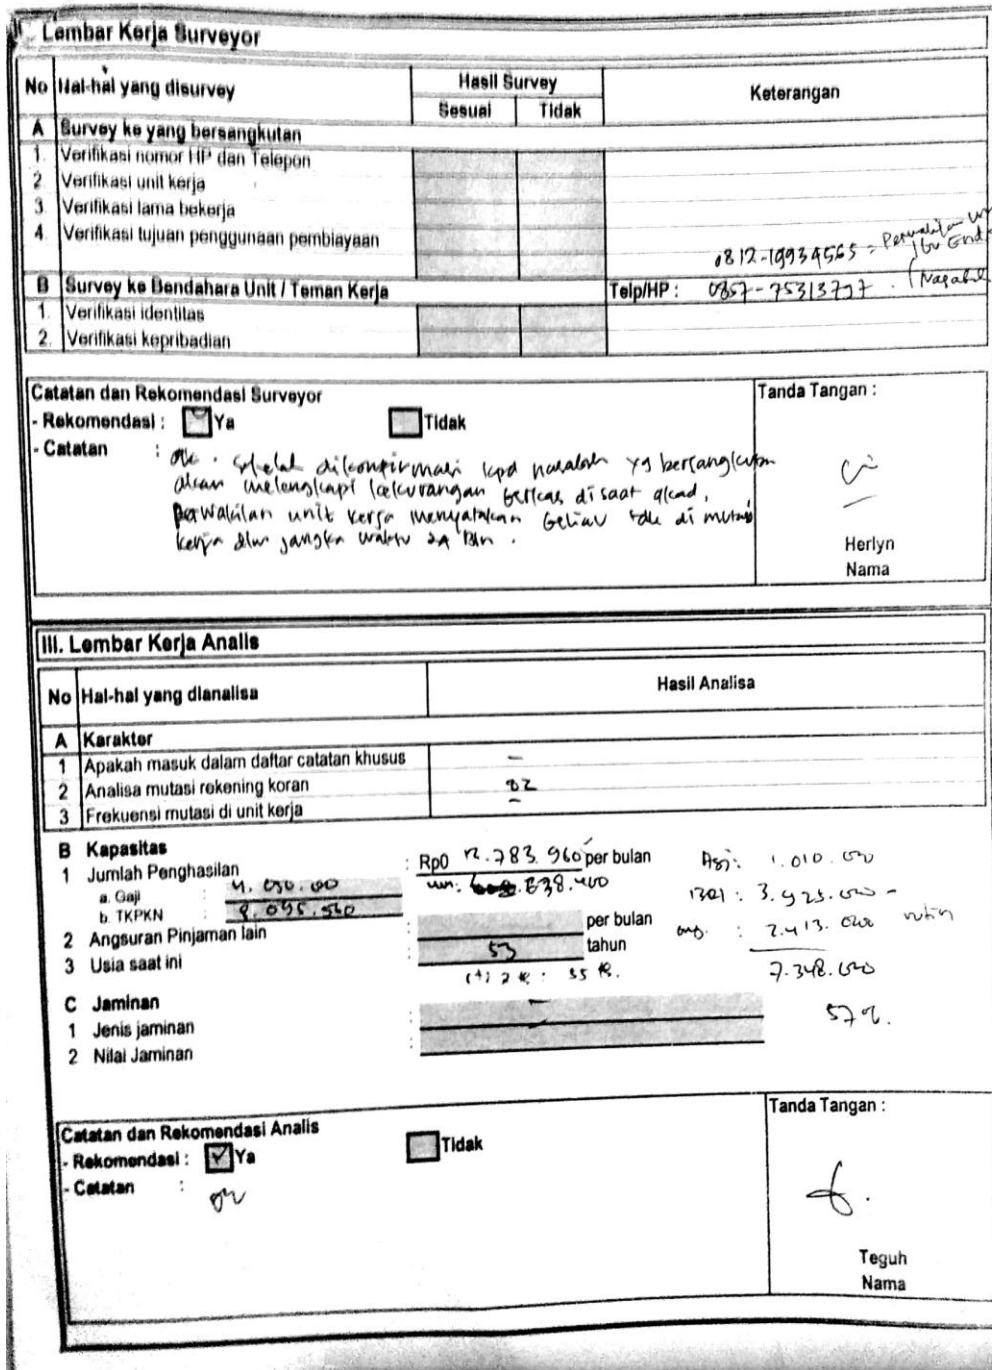 Lembar Kerja Surveyor
No Hal-hal yang disurvey Hasil Survey Keterangan
Sesuai Tidak
A Survey ke yang bersangkutan
1. Verifikasi nomor HP dan Telepon
2. Verifikasi unit kerja
3. Verifikasi lama bekerja
4. Verifikasi tujuan penggunaan pembiayaan
0812-19934565 = Perwakilan
B Survey ke Bendahara Unit / Teman Kerja Telp/HP : 0857-75313797 . (Nasabah
1. Verifikasi identitas
2. Verifikasi kepribadian
Catatan dan Rekomendasi Surveyor Tanda Tangan :
- Rekomendasi : Ya Tidak
- Catatan : ok . setelah dikonfirmasi kpd nasabah yg bersangkutan
akan melengkapi kekurangan berkas disaat akad,
perwakilan unit kerja menyatakan beliau tdk di mutasi
kerja dlm jangka waktu 24 Bln .
Herlyn
Nama
III. Lembar Kerja Analis
No Hal-hal yang dianalisa Hasil Analisa
A Karakter
1 Apakah masuk dalam daftar catatan khusus -
2 Analisa mutasi rekening koran
3 Frekuensi mutasi di unit kerja -
B Kapasitas
1 Jumlah Penghasilan : Rp0 12.783.960 per bulan
a. Gaji :
b. TKPKN :
1.010.000
: 3.925.000 -
: 2.413.000 rutin
7.348.000
57%.
2 Angsuran Pinjaman lain : per bulan
3 Usia saat ini : 53 tahun
C Jaminan
1 Jenis jaminan : -
2 Nilai Jaminan : -
Catatan dan Rekomendasi Analis Tanda Tangan :
- Rekomendasi : Ya Tidak
- Catatan : ok
Teguh
Nama